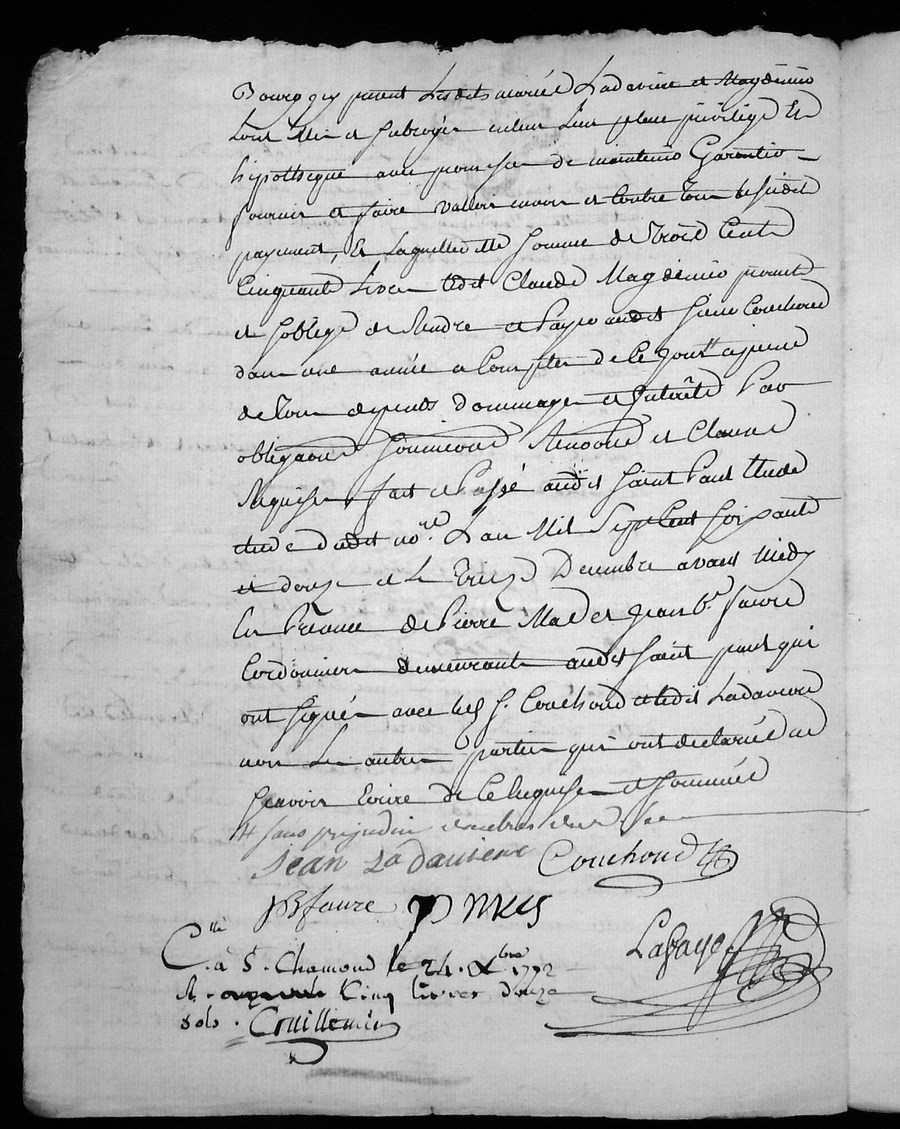 Bourg qy juvent Lesdits mariés Ladavière et Magdinier
Leur Mis et Subrogés en leur Lieu place privilege Et
hipotheque avec promesse de maintenir Garentir
fournir et faire valloir envers et Contre Tous le susdit
payement, Et Laquelleditte Somme de Trois Cents
Cinquante Livres ledit Claude Magdinier promet
et Soblige de Rendre et Payer audit Sieur Couchoud
dans une année a Compter de Ce Jourd'huy a peine
de Tous depents dommages et Interêts Par
obligaons Soumions Renoons et Clauses
Requises fait et Passé audit Saint Paul Etude
dudit nore. L'an Mil Sept Cent Soixante
et douze et Le Treize Decembre avant midy
En Presence de Pierre Mas et Jean Bte faure
Cordonniers demeurants audit Saint paul qui
ont Signés avec led S. Couchoud et ledit Ladaviere
non Les autres parties qui ont declarés ne
Sçavoir Ecrire de Ce Requises et Sommées
# sans prejudice dautres dus
Jean Ladaviere Couchoud
JB faure P mas
Lafaye
C.llé à St. Chamond le 24. Xbre 1772
R. Cinq livres douze
sols. Cruillemin